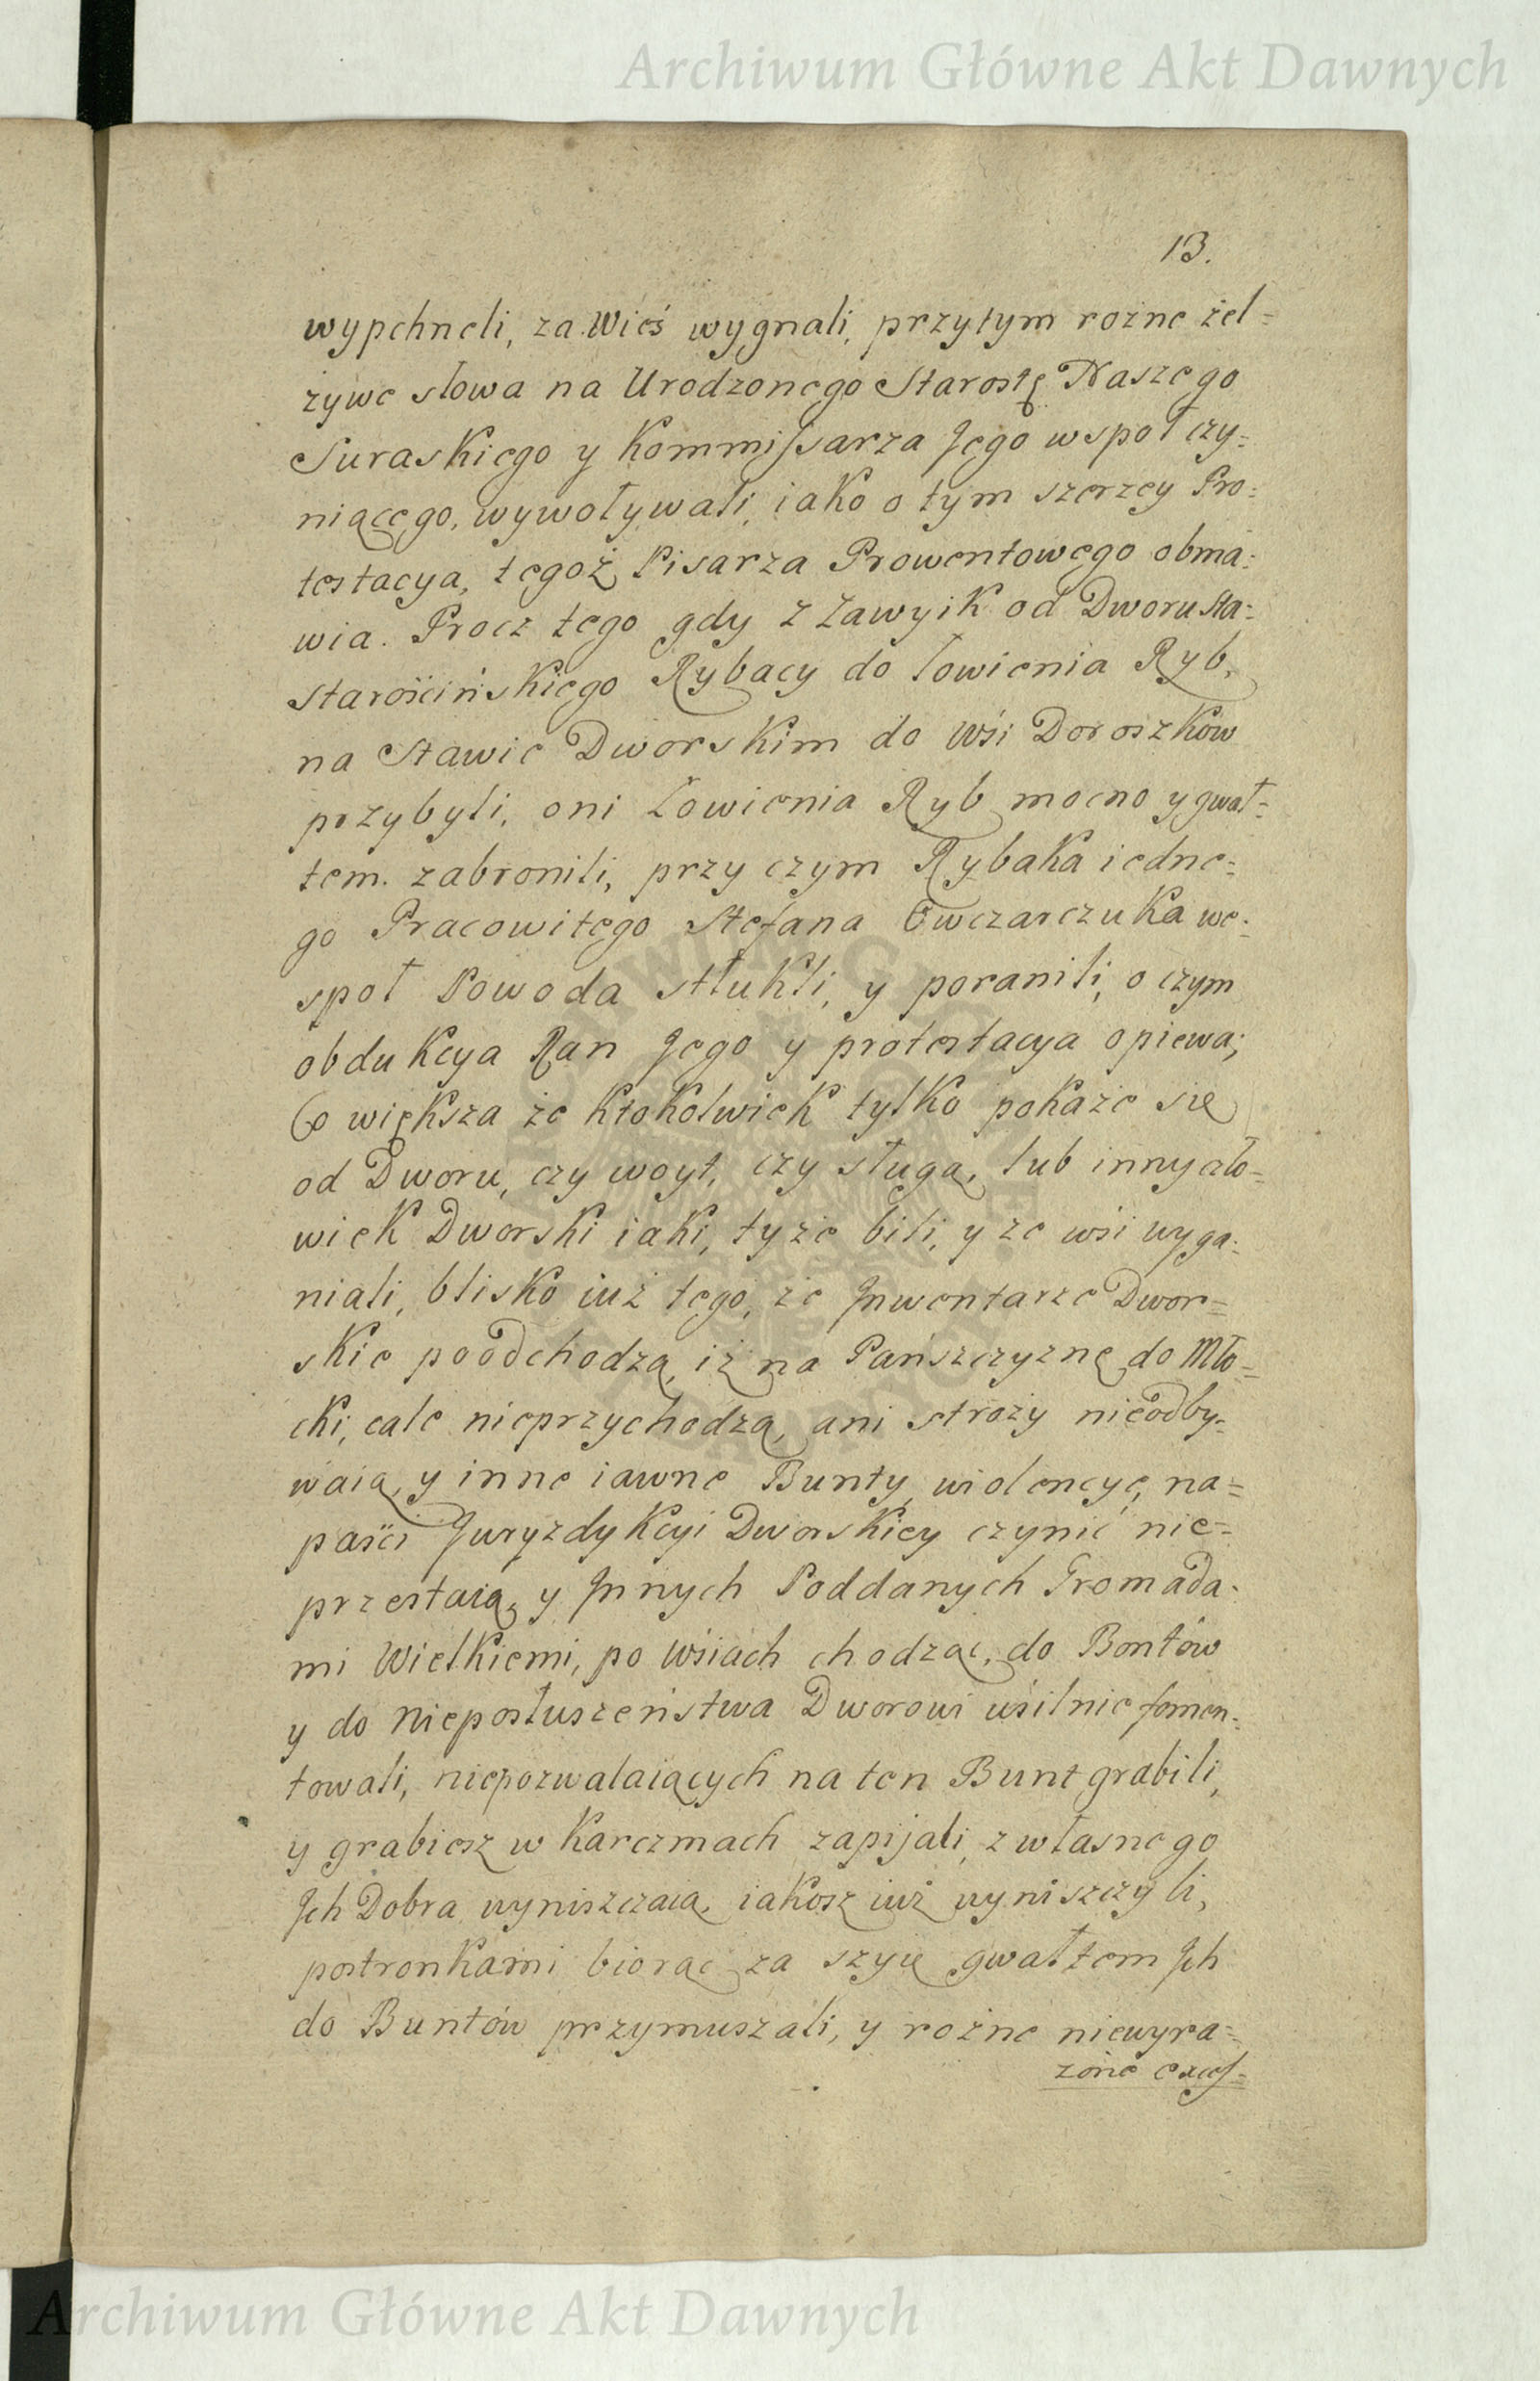 Archiwum Główne Akt Dawnych
13.
wypchneli, za Wieś wygnali, przytym rozne żel=
zywe słowa na Urodzonego Starostę Naszego
Suraskiego y Kommissarza Jego wspoł czy=
niącego, wywoływali, iako o tym szerzey Pro=
testacya, tegoż Pisarza Prowentowego obma=
wia. Procz tego gdy z Zawyik od Dworu Sta=
Starościńskiego Rybacy do łowienia Ryb,
na Stawie Dworskim do Wsi Doroszkow
przybyli, oni Łowienia Ryb mocno y gwał=
tem. zabronili, przy czym Rybaka iedne=
go Pracowitego Stefana Owczarczuka we=
społ Powoda stłukli, y poranili, o czym
obdukcya Ran Jego y protestacya opiewa;
Co większa że ktokolwiek tylko pokaże się
od Dworu, czy woyt, czy sługa, lub inny cżło=
wiek Dworski iaki, tyże bili, y ze wsi wyga=
niali, blisko iuż tego, że Jnwentarze Dwor=
skie poodchodzą, iż na Pańszczyznę do Mło=
cki, cale nieprzychodzą, ani stroży nieodby=
waią, y inne iawne Bunty, wiolencye, na=
paści Juryzdykcyi Dworskiey czynić nie=
przestaią, y Jnnych Poddanych Gromada=
mi Wielkiemi, po Wsiach chodząc, do Bontów
y do Nieposłuszeństwa Dworowi usilnie fomen=
towali, niepozwalaiących na ten Bunt grabili,
y grabiesz w Karczmach zapijali, z własnego
Jch Dobra wyniszczaią, iakosz iuż wyniszczyli,
postronkami biorąc za szyię gwałtem Jch
do Buntów przymuszali, y rożne niewyra=
zone excess=
Archiwum Główne Akt Dawnych